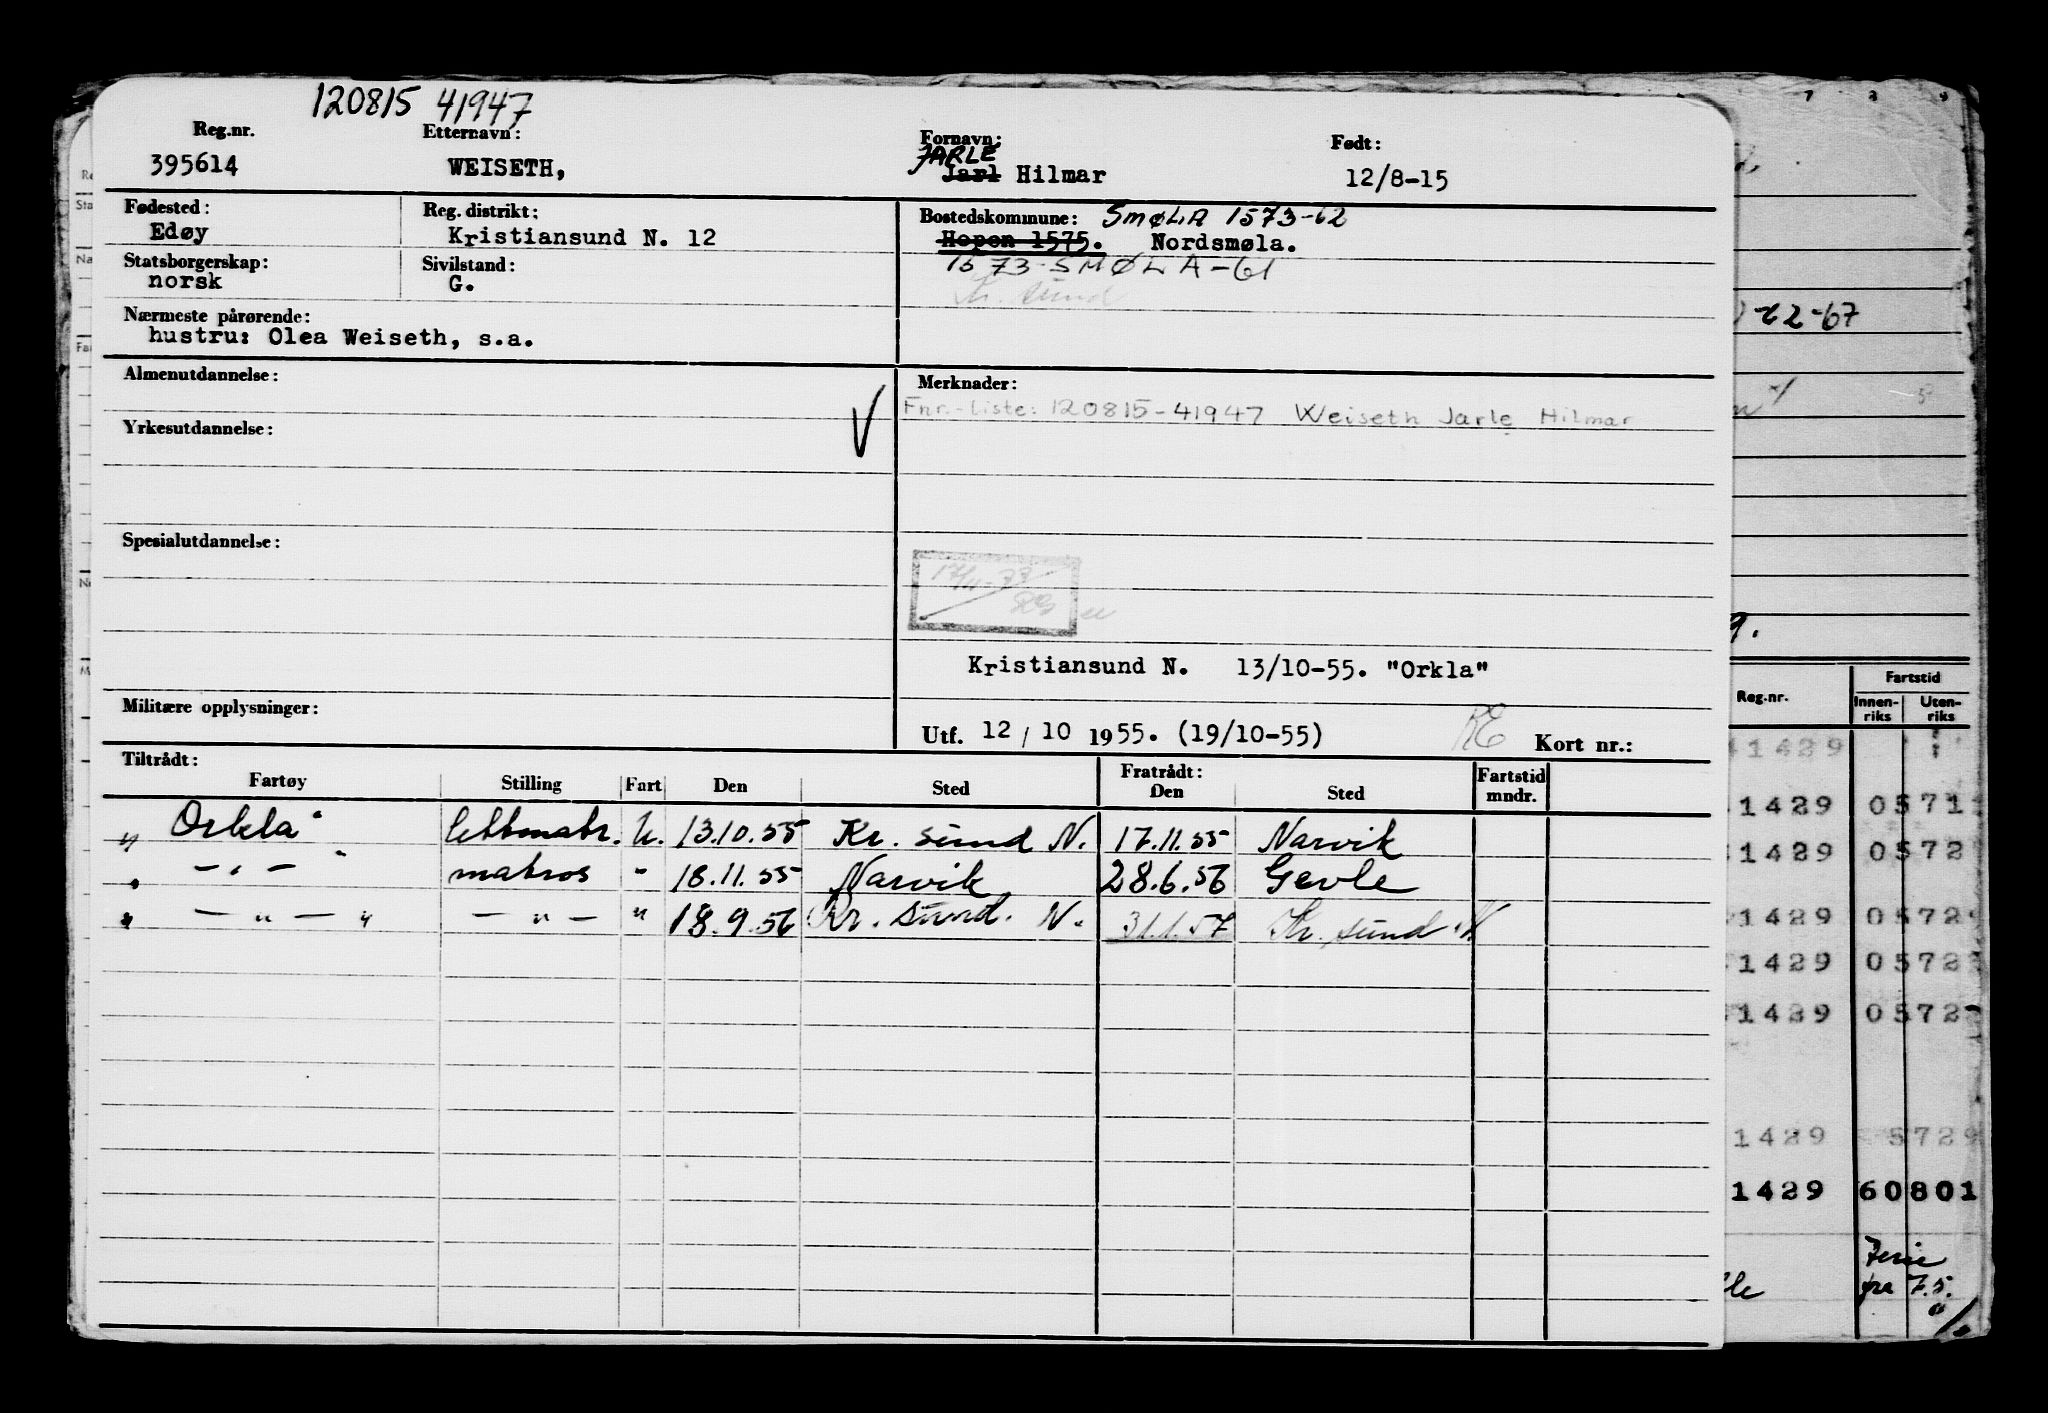 120815 41947
Reg.nr. Etternavn: Fornavn: Født:
JARLE
395614 WEISETH, Jarl Hilmar 12/8-15
Fødested: Reg. distrikt: Bostedskommune: SMØLA 1573-62
Edøy Kristiansund N. 12 Hopen 1575. Nordsmøla.
Statsborgerskap: Sivilstand: 1573 SMØLA-61
norsk G. Kr. sund
Nærmeste pårørende:
hustru: Olea Weiseth, s.a.
Almenutdannelse: Merknader:
Fnr.-liste: 120815-41947 Weiseth Jarle Hilmar
Yrkesutdannelse:
Spesialutdannelse:
17/11-77
Kristiansund N. 13/10-55. "Orkla"
Militære opplysninger:
Utf. 12/10 1955. (19/10-55) Kort nr.:
Tiltrådt: Fratrådt: Fartstid
Fartøy Stilling Fart Den Sted Den Sted mndr.
" Orkla" lettmatr. U. 13.10.55 Kr. sund N. 17.11.55 Narvik
" - " - " matros - 18.11.55 Narvik 28.6.56 Gevle
" - " - " - " - " 18.9.56 Kr. sund. N. 31.1.57 Kr. sund N.
-67
9.
Reg.nr. Fartstid
Innen-riks Uten-riks
1429
1429 0571
1429 0572
1429 0572
1429 0572
1429 0572
1429 5729
1429 60801
Ferie
fra 7.5.